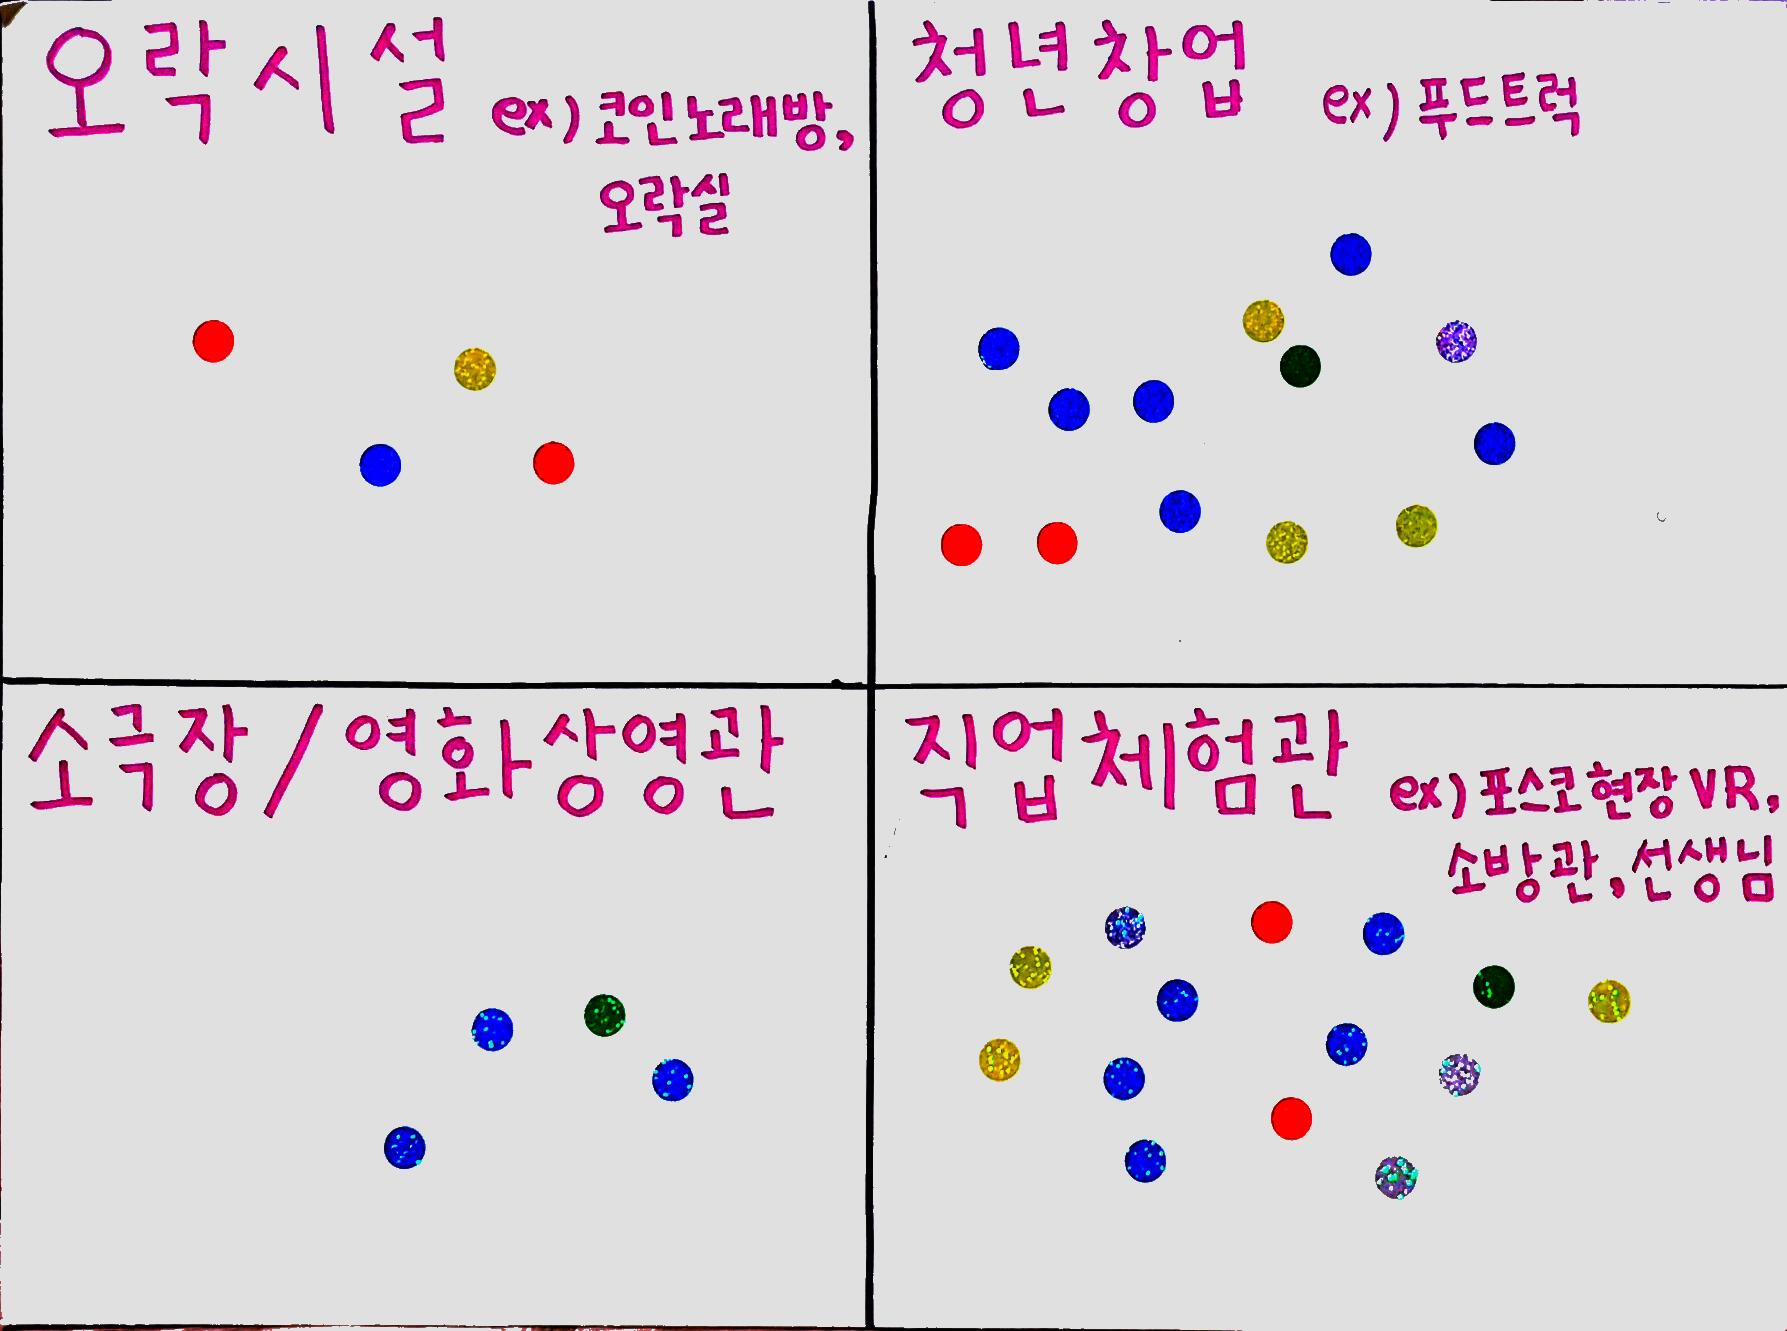 오락시설 ex) 코인노래방,
오락실
청년창업 ex) 푸드트럭
소극장/영화상영관
직업체험관 ex) 포스코현장VR,
소방관, 선생님